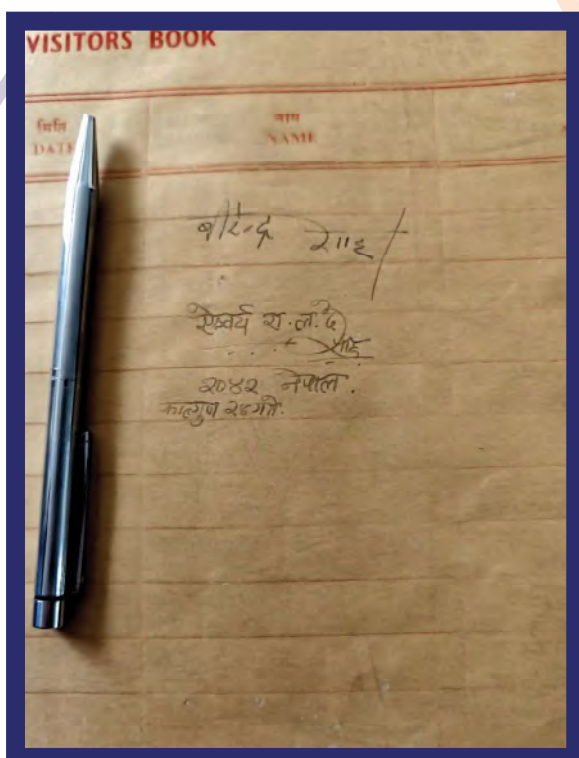 VISITORS BOOK
मिति
DATE
नाम
NAME
बीरेन्द्र शाह
ऐश्वर्य रा. ल. दे
शाह
२०४२ नेपाल.
फाल्गुण